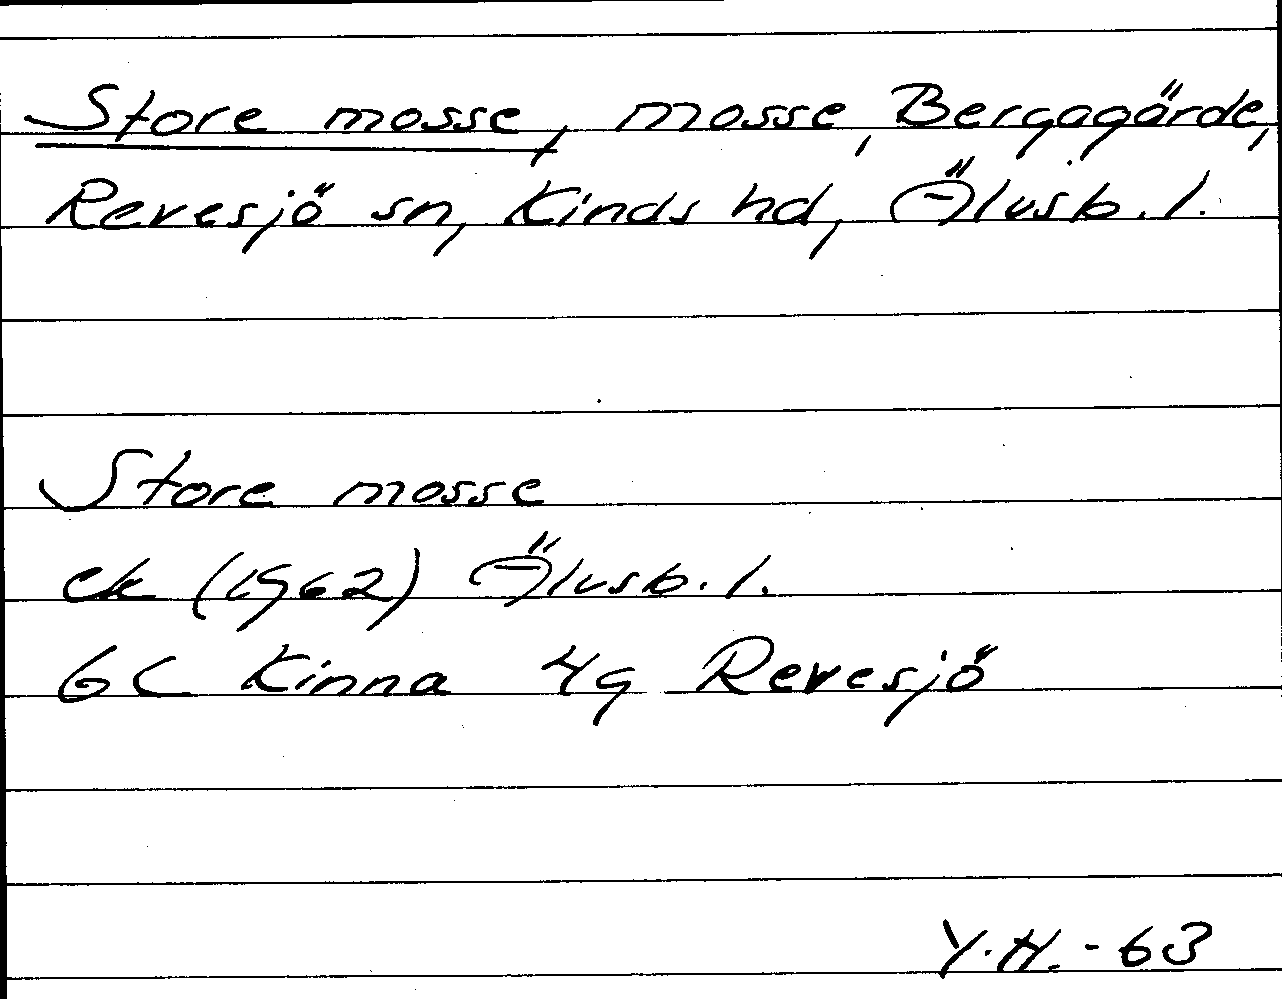 Store mosse, mosse, Bergagärde,
Revesjö sn, Kinds hd, Älvsb. l.
Store mosse
ek (1962) Älvsb. l.
6C Kinna 4g Revesjö
Y.H. - 63